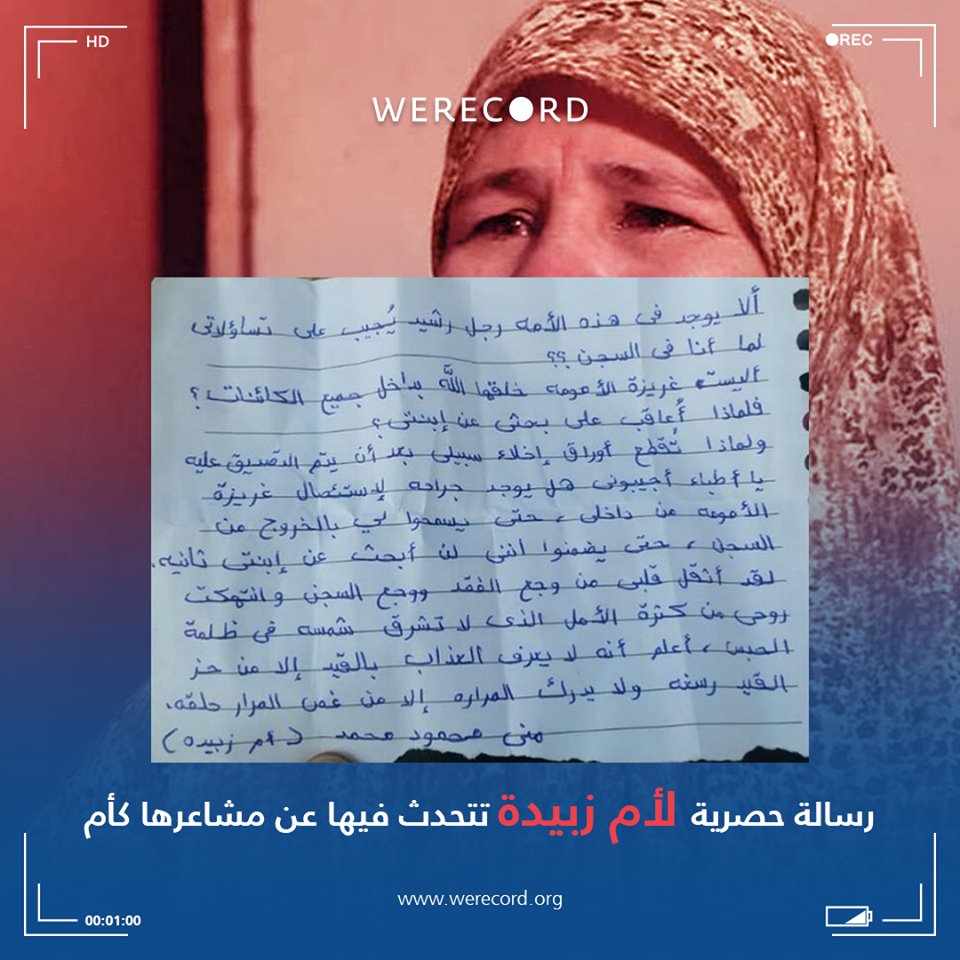 HD
REC
WERECORD
ألا يوجد في هذه الأمه رجل رشيد يُجيب على تساؤلاتى
لما أنا فى السجن ؟؟
أليست غريزة الأمومه خلقها الله بداخل جميع الكائنات ؟
فلماذا أُعاقب على بحثى عن إبنتى ؟
ولماذا تُقطع أوراق إخلاء سبيلى بعد أن يتم التصديق عليه
يا أطباء أجيبونى هل يوجد جراحه لإستئصال غريزة
الأمومه من داخلى ، حتى يسمحوا لي بالخروج من
السجن ، حتى يضمنوا أننى لن أبحث عن إبنتى ثانيه.
لقد أثقل قلبى من وجع الفقد ووجع السجن وانتهكت
روحى من كثرة الأمل الذى لا تشرق شمسه فى ظلمة
الحبس ، أعلم أنه لا يعرف العذاب بالقيد إلا من حز
القيد رسغه ولا يدرك المراره إلا من غص المرار حلقه.
منى محمود محمد (أم زبيده)
رسالة حصرية لأم زبيدة تتحدث فيها عن مشاعرها كأم
www.werecord.org
00:01:00